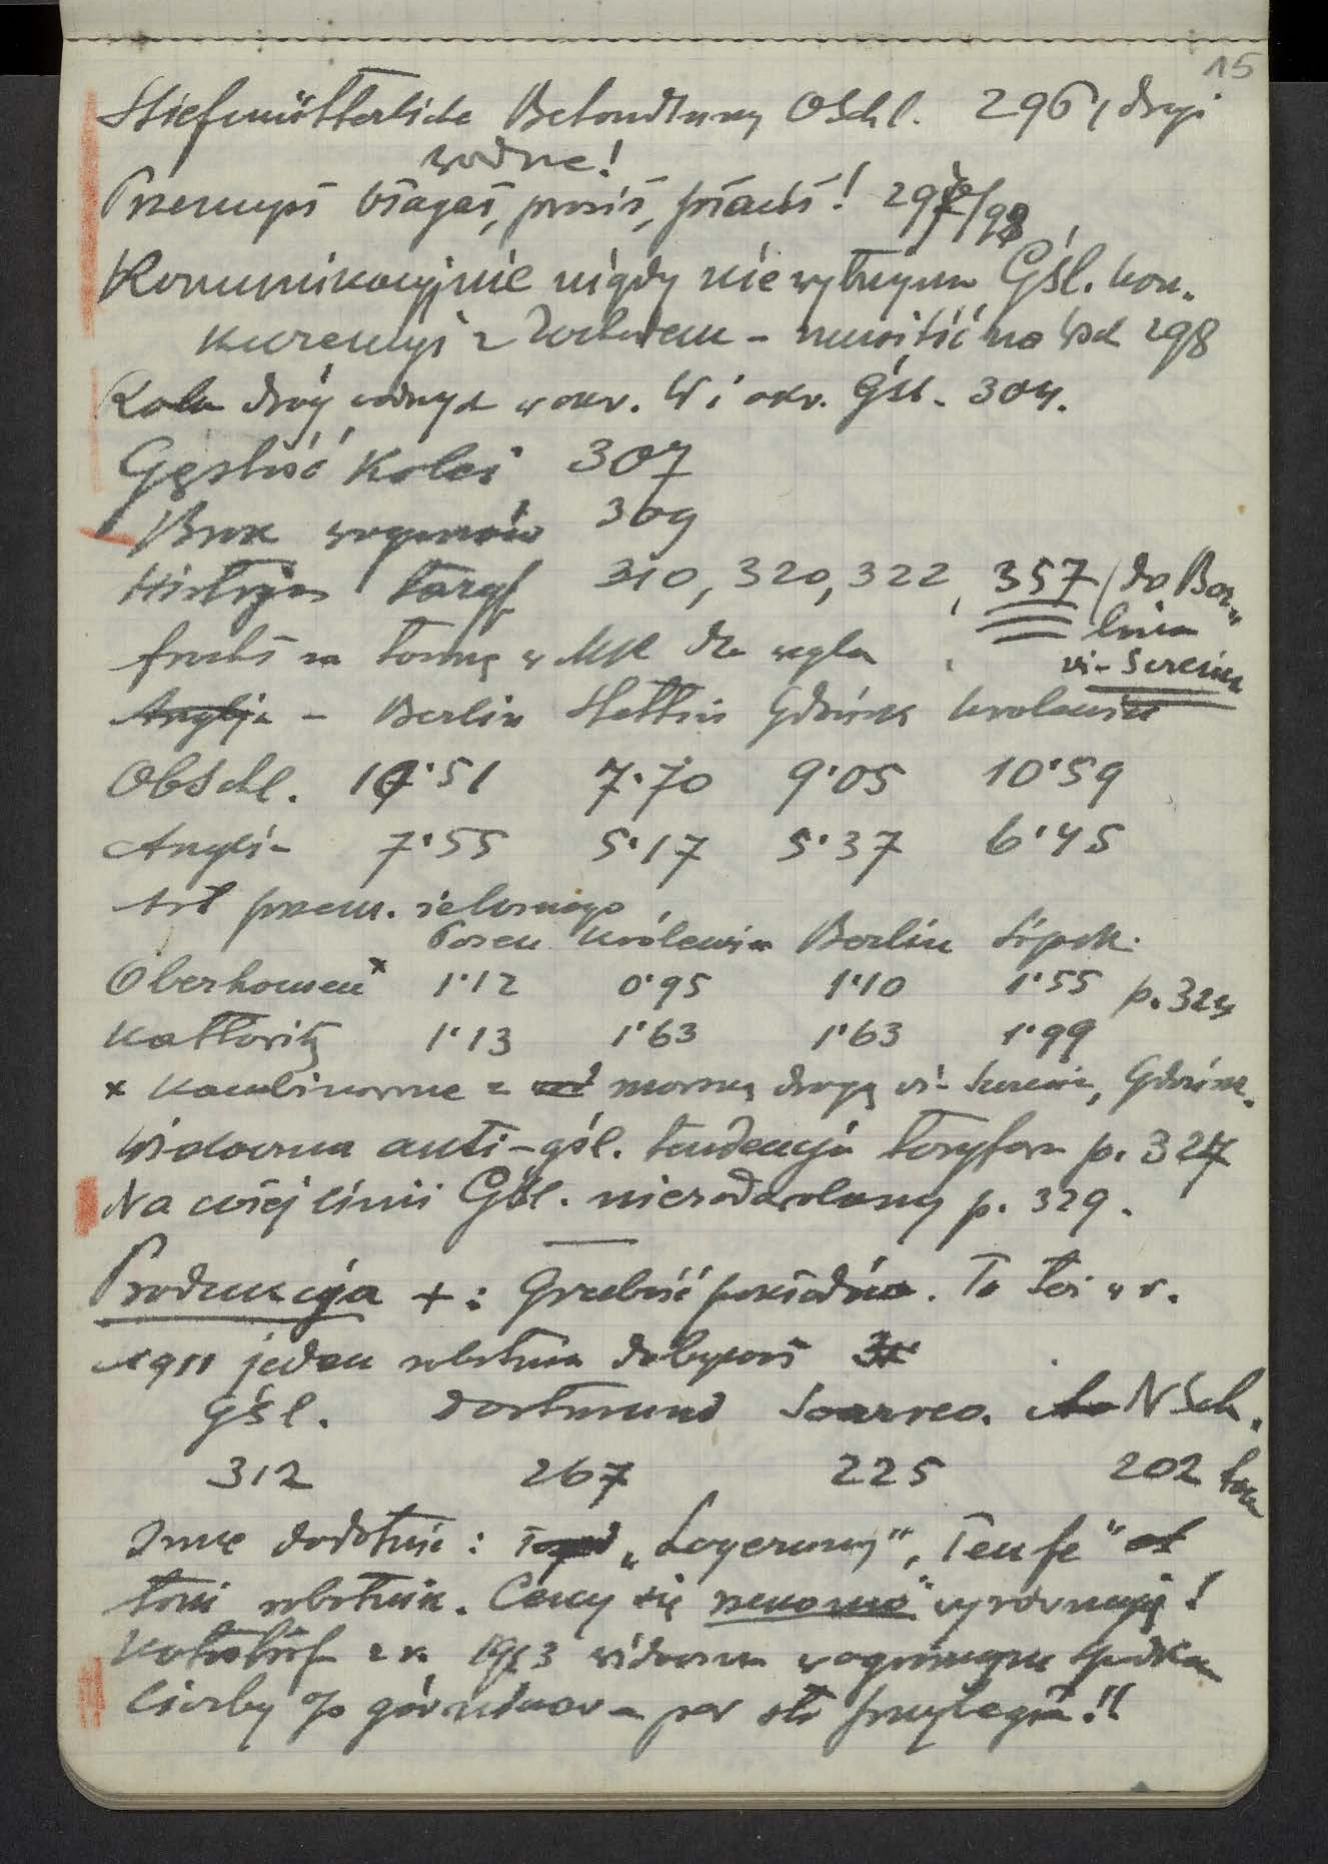 15
Stiefmütterliche Behandlung OSchl. 296, drogi
wodne!
Przemysł błagał, prosił, płacił! 297/98
Komunikacyjnie nigdy nie wytrzyma Gśl. kon-
kurencji z Zachodem - musi iść na Wsch 298
Rola dróg wodnych w okr. W i okr. Gśl. 304.
Gęstość kolei 307
Brak wagonów 309
Historja taryf 310, 320, 322, 357 / do Ber-
lina
via Szczecin
fracht za tonnę w MK dla węgla
Anglja - Berlin Stettin Gdańsk Królewiec
ObSchl. 10·51 7·70 9·05 10·59
Anglia 7·55 5·17 5·37 6·45
Art przem. żelaznego
Posen Królewiec Berlin Lipsk
Oberhausen x 1·12 0·95 1·10 1·55 p. 324
Kattowitz 1·13 1·63 1·63 1·99
x Kombinowane z morską drogą via Szczecin, Gdańsk.
Widoczna anti-gśl. tendencja taryfowa p. 327
Na całej linii Gśl. niezadowolony p. 329.
Produkcja +: Grubość pokładów. To też w r.
1911 jeden robotnik dobywał
Gśl. Dortmund Saarrev. NSch.
312 267 225 202 ton
Inne dodatnie: „Lagerung", „Teufe"
tani robotnik. Ceny się wyrównują!
1913 widoczna w ogromnym spadku
liczby % górników - per sto przyległa!!